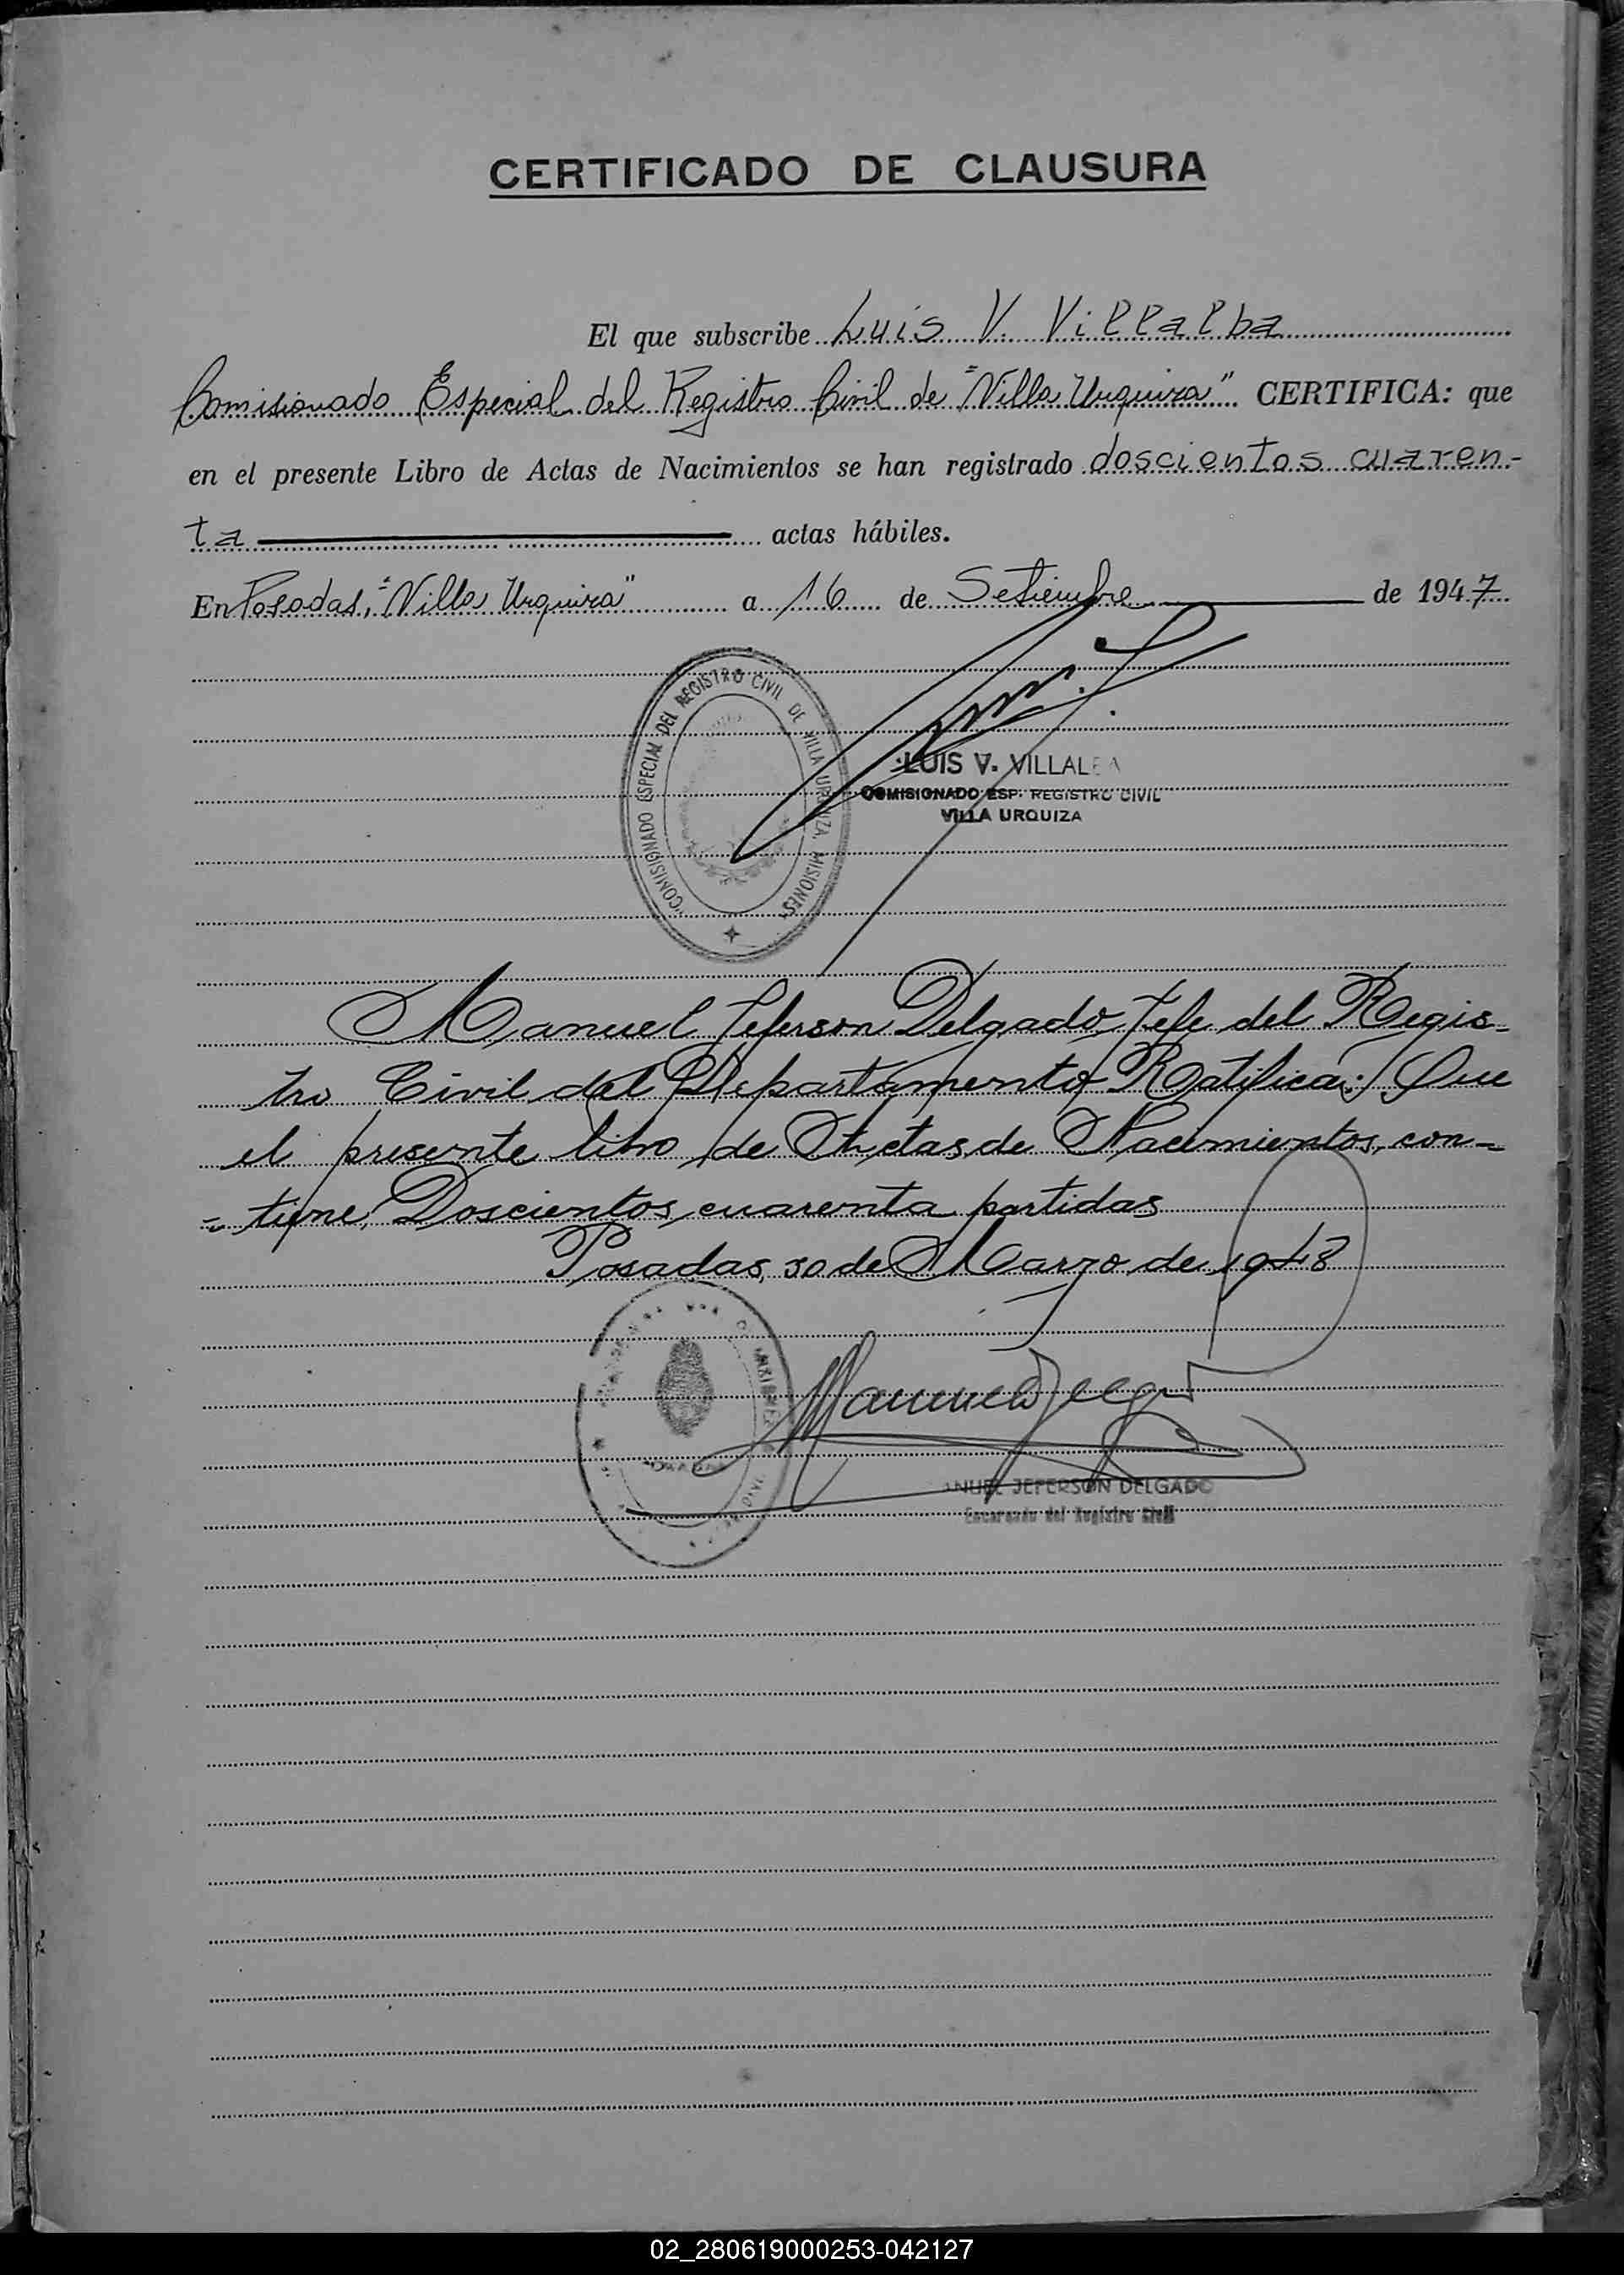 CERTIFICADO DE CLAUSURA
El que subscribe Luis V. Villalba
Comisionado Especial del Registro Civil de "Villa Urquiza" CERTIFICA: que
en el presente Libro de Actas de Nacimientos se han registrado doscientos cuaren-
ta actas hábiles.
En Posadas, "Villa Urquiza" a 16 de Setiembre de 1947.
"COMISIONADO ESPECIAL DEL REGISTRO CIVIL DE VILLA URQUIZA. MISIONES"
LUIS V. VILLALBA
COMISIONADO ESP. REGISTRO CIVIL
VILLA URQUIZA
Manuel Jeferson Delgado, Jefe del Regis-
tro Civil del Departamento Ratifica: Que
el presente libro de Actas de Nacimientos, con-
-tiene Doscientos cuarenta partidas
Posadas, 30 de Marzo de 1948
ANUEL JEFERSON DELGADO
Encargado del Registro Civil
02_280619000253-042127